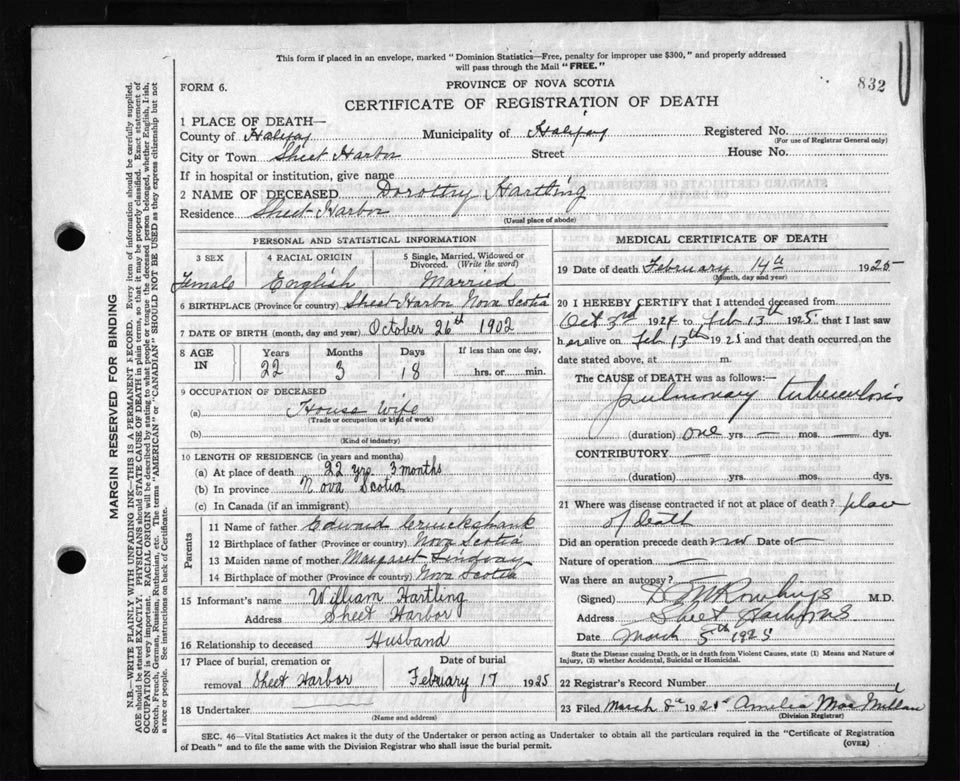 This form if placed in an envelope, marked "Dominion Statistics—Free, penalty for improper use $300," and properly addressed
will pass through the Mail "FREE."
832
FORM 6.
PROVINCE OF NOVA SCOTIA
CERTIFICATE OF REGISTRATION OF DEATH
1 PLACE OF DEATH—
County of Halifax Municipality of Halifax Registered No.
(For use of Registrar General only)
City or Town Sheet Harbor Street House No.
If in hospital or institution, give name
2 NAME OF DECEASED Dorothy Hartling
Residence Sheet Harbor
(Usual place of abode)
PERSONAL AND STATISTICAL INFORMATION
3 SEX 4 RACIAL ORIGIN 5 Single, Married, Widowed or
Divorced. (Write the word)
Female English Married
6 BIRTHPLACE (Province or country) Sheet Harbor Nova Scotia
7 DATE OF BIRTH (month, day and year) October 26th 1902
8 AGE IN Years Months Days If less than one day,
22 3 18 hrs. or min.
9 OCCUPATION OF DECEASED
(a) House Wife
(Trade or occupation or kind of work)
(b)
(Kind of industry)
10 LENGTH OF RESIDENCE (in years and months)
(a) At place of death 22 yrs. 3 months
(b) In province Nova Scotia
(c) In Canada (if an immigrant)
Parents
11 Name of father Edward Cruickshank
12 Birthplace of father (Province or country) Nova Scotia
13 Maiden name of mother Margaret Lindsay
14 Birthplace of mother (Province or country) Nova Scotia
15 Informant's name William Hartling
Address Sheet Harbor
16 Relationship to deceased Husband
17 Place of burial, cremation or Date of burial
removal Sheet Harbor February 17 1925
18 Undertaker
(Name and address)
MEDICAL CERTIFICATE OF DEATH
19 Date of death February 14th 1925
(Month, day and year)
20 I HEREBY CERTIFY that I attended deceased from
Oct 3rd 1924 to Feb 13th 1925 that I last saw
her alive on Feb 13th 1925 and that death occurred on the
date stated above, at m.
The CAUSE of DEATH was as follows:—
pulmonary tuberculosis
(duration) one yrs. — mos. — dys.
CONTRIBUTORY —
(duration) yrs. mos. dys.
21 Where was disease contracted if not at place of death? place
of death
Did an operation precede death no Date of —
Nature of operation —
Was there an autopsy?
(Signed) M.D.
Address Sheet
Date March 5th 1925
State the Disease causing Death, or in death from Violent Causes, state (1) Means and Nature of
Injury, (2) whether Accidental, Suicidal or Homicidal.
22 Registrar's Record Number
23 Filed March 8th 1925 Amelia MacMillan
(Division Registrar)
SEC. 46—Vital Statistics Act makes it the duty of the Undertaker or person acting as Undertaker to obtain all the particulars required in the "Certificate of Registration
of Death" and to file the same with the Division Registrar who shall issue the burial permit.
(OVER)
MARGIN RESERVED FOR BINDING
N.B.—WRITE PLAINLY WITH UNFADING INK—THIS IS A PERMANENT RECORD. Every item of information should be carefully supplied.
AGE should be stated EXACTLY. PHYSICIANS should STATE CAUSE OF DEATH in plain terms, so that it may be properly classified. Exact statement of
OCCUPATION is very important. RACIAL ORIGIN will be described by stating to what people or tongue the deceased person belonged, whether English, Irish,
Scotch, French, German, Russian, Ruthenian, etc. The terms "AMERICAN" or "CANADIAN" SHOULD NOT BE USED as they express citizenship but not
a race or people. See instructions on back of Certificate.